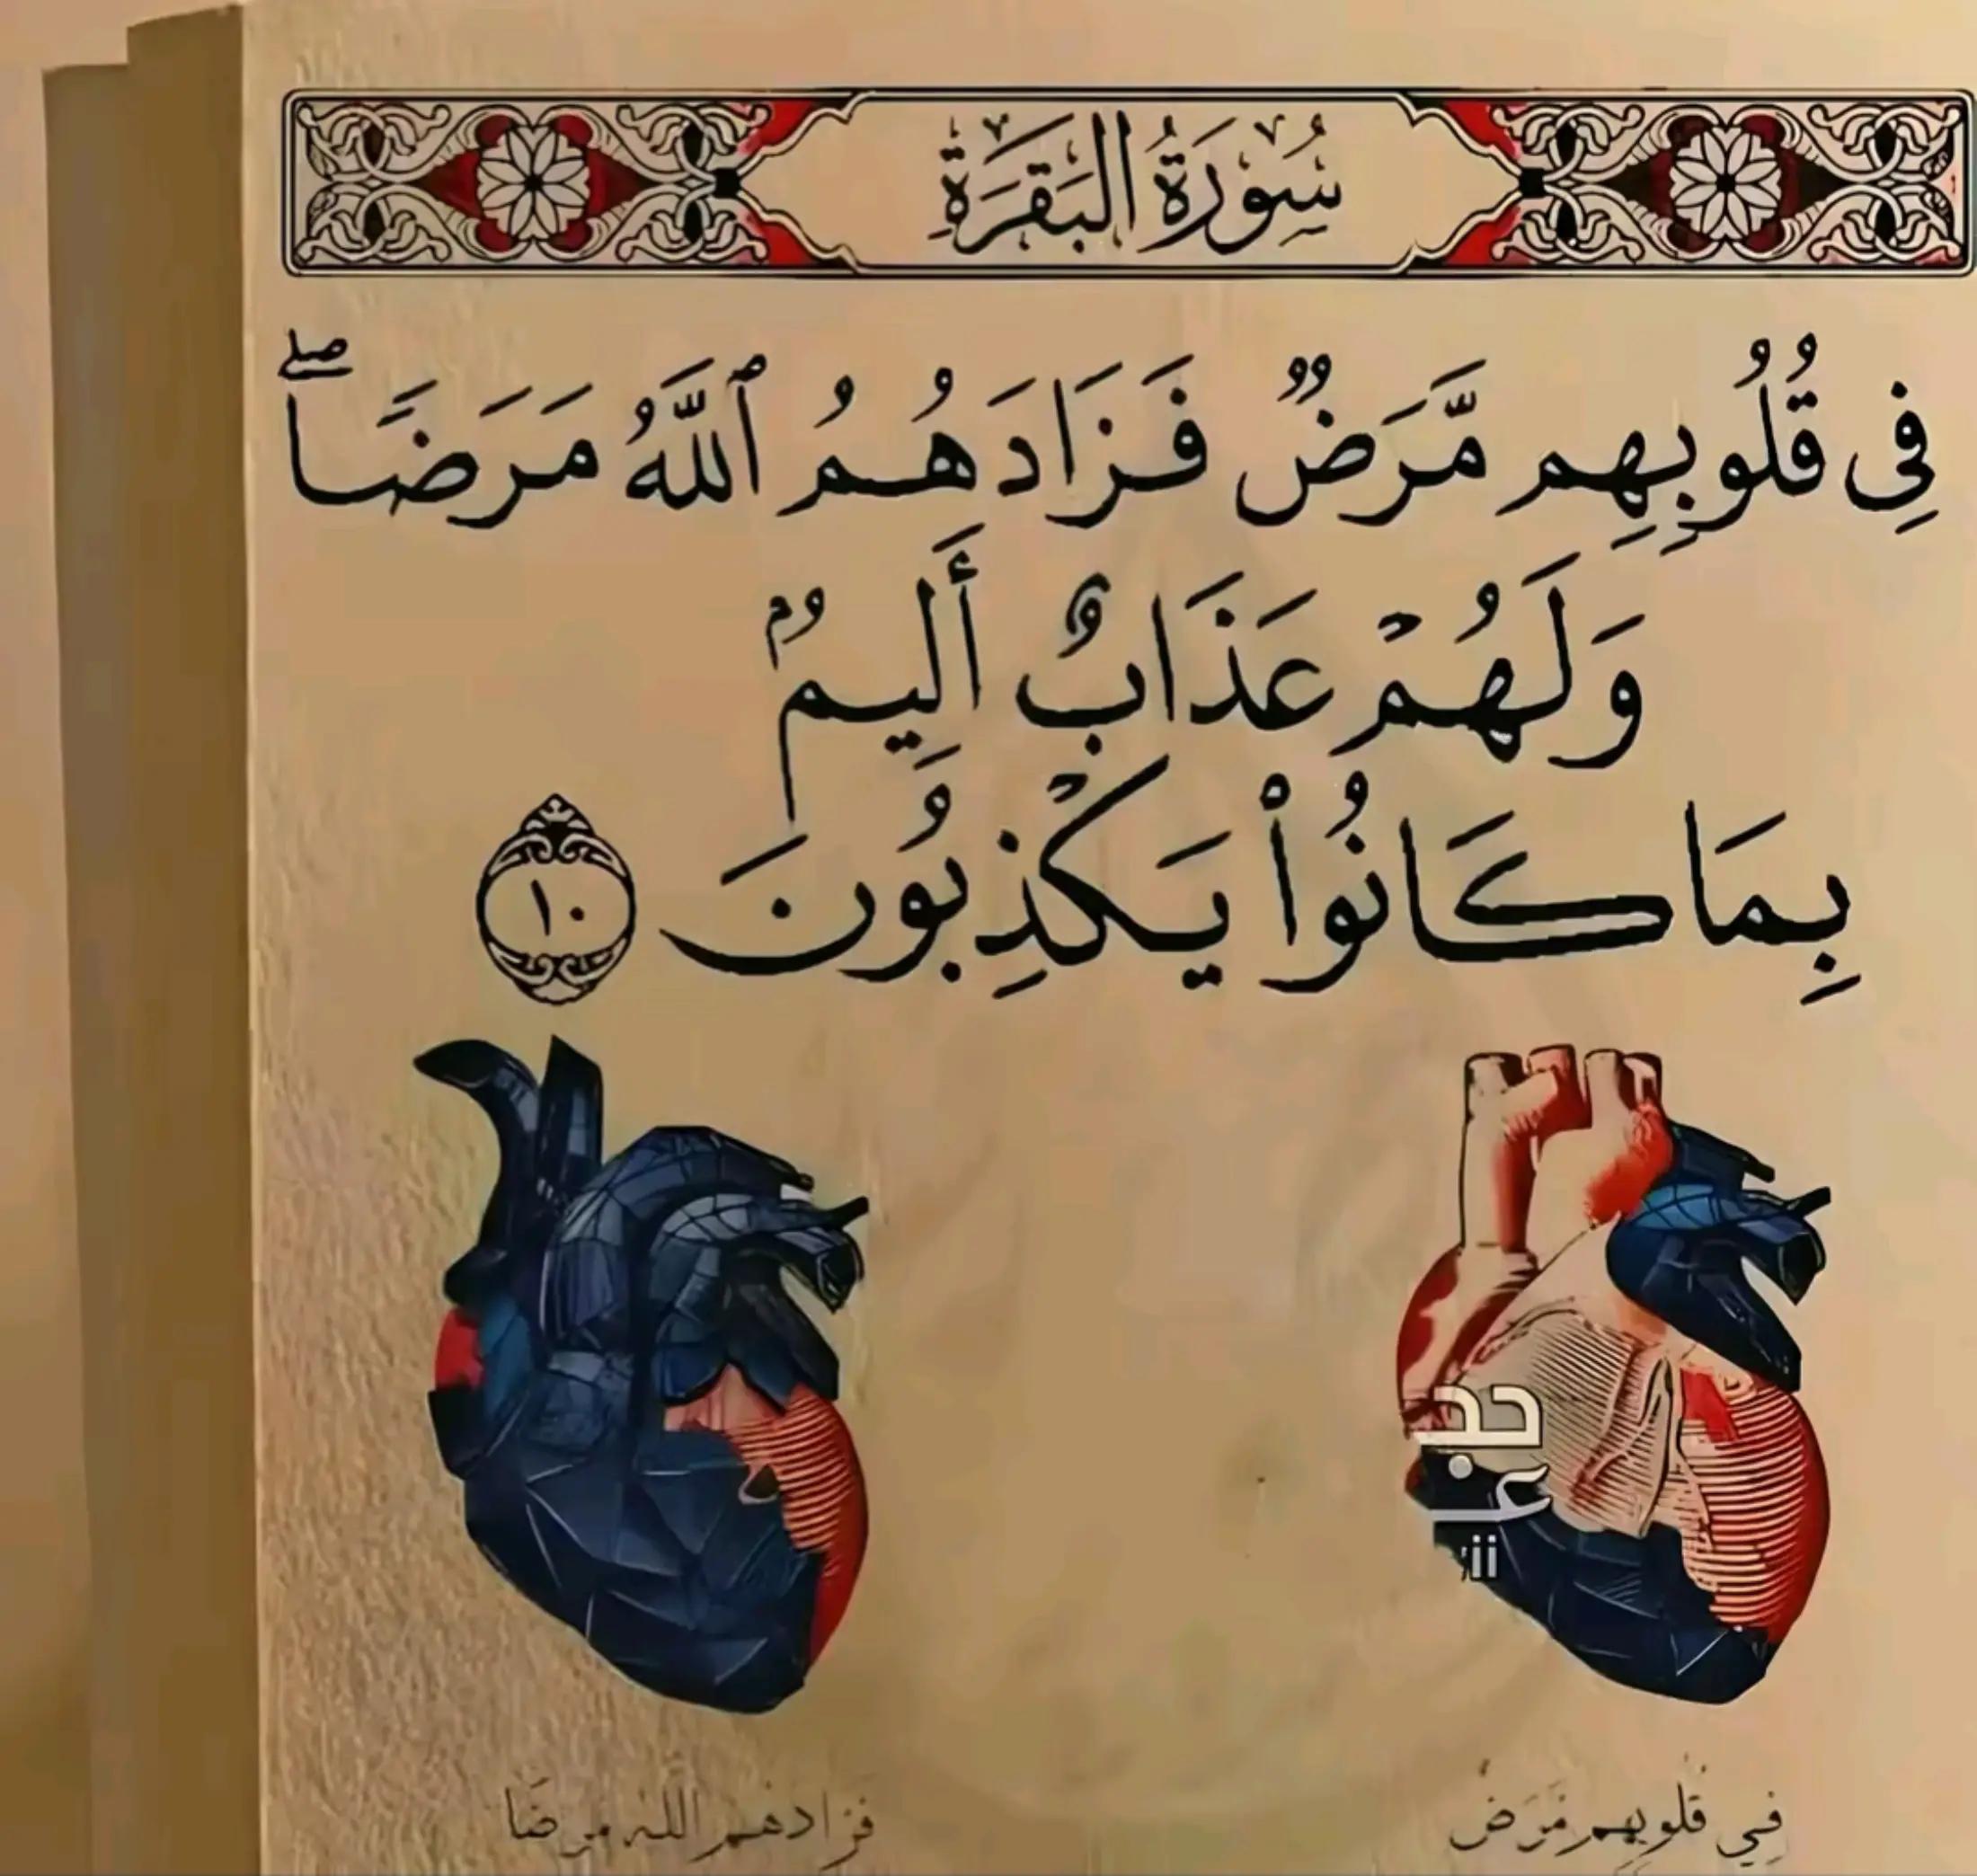 سُورَةُ البَقَرَةِ
فِى قُلُوبِهِم مَّرَضٌ فَزَادَهُمُ ٱللَّهُ مَرَضًاۖ
وَلَهُمْ عَذَابٌ أَلِيمٌۢ
بِمَا كَانُوا۟ يَكْذِبُونَ ١٠
فِي قُلُوبِهِم مَّرَضٌ
فَزَادَهُم اللَّه مَرَضًا